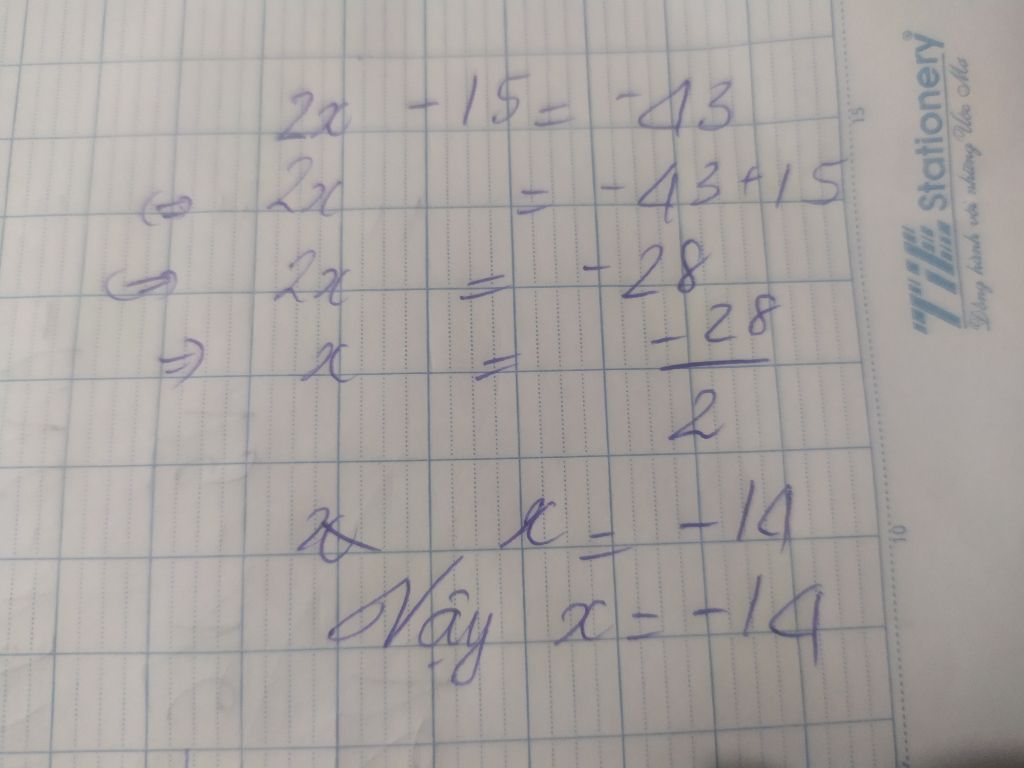 2x - 15 = -43
⇔ 2x = -43 + 15
⇔ 2x = -28
⇒ x = -28
2
x x = -14
Vậy x = -14
15
10
TiTi Stationery
Đồng hành với những Ước Mơ